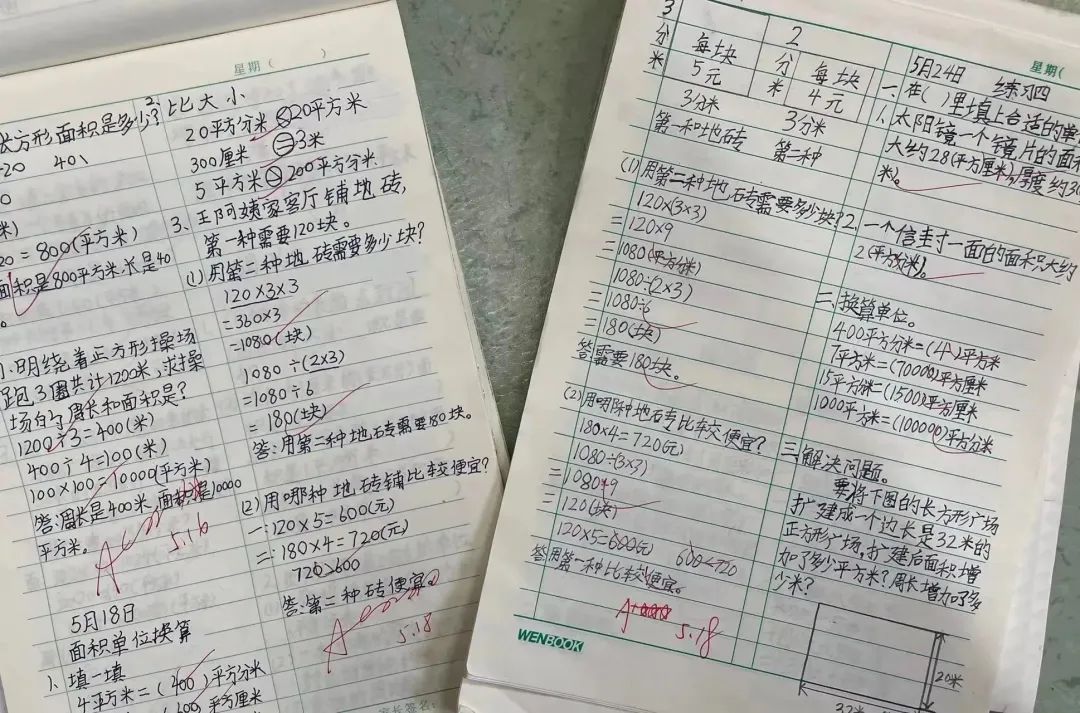 星期（ ）
长方形面积是多少？
20 = 800(平方米)
面积是800平方米.长是40
明绕着正方形操场
跑3圈共计1200米，求操
场的周长和面积是？
1200÷3=400(米)
400÷4=100(米)
100×100=10000(平方米)
答:周长是400米,面积是10000
平方米。
5.16
5月18日
面积单位换算
1、填一填
4平方米=(400)平方分米
2.比大小
20平方分米 20平方米
300厘米 = 3米
5平方米 > 200平方分米
3、王阿姨家客厅铺地砖,
第一种需要120块。
(1)用第二种地砖需要多少块?
120×3×3
=360×3
=1080(块)
1080÷(2×3)
=1080÷6
=180(块)
答:用第二种地砖需要180块。
(2)用哪种地砖铺比较便宜?
一:120×5=600(元)
二:180×4=720(元)
720>600
答:第二种砖便宜。
5.18
3分米
每块
5元
3分米
第一种地砖
2分米
每块
4元
3分米
第二种
(1)用第二种地砖需要多少块?
120×(3×3)
=120×9
=1080(平方分米)
1080÷(2×3)
=1080÷6
=180(块)
答需要180块。
(2)用哪种地砖比较便宜?
180×4=720(元)
1080÷(3×3)
=1080÷9
=120(块)
120×5=600(元) 600<720
答用第一种比较便宜。
5.18
WENBOOK
星期(
5月24日 练习四
一、在( )里填上合适的单
1、太阳镜一个镜片的面积
大约28(平方厘米),厚度约30
米)。
2、一个信封一面的面积大约
2(平方分米)。
二、换算单位。
400平方分米=(4)平方米
7平方米=(70000)平方厘米
15平方分米=(1500)平方厘米
1000平方米=(100000)平方分米
三解决问题。
要将下图的长方形广场
扩建成一个边长是32米的
正方形广场,扩建后面积增
加了多少平方米?周长增加了多
少米?
20米
32米